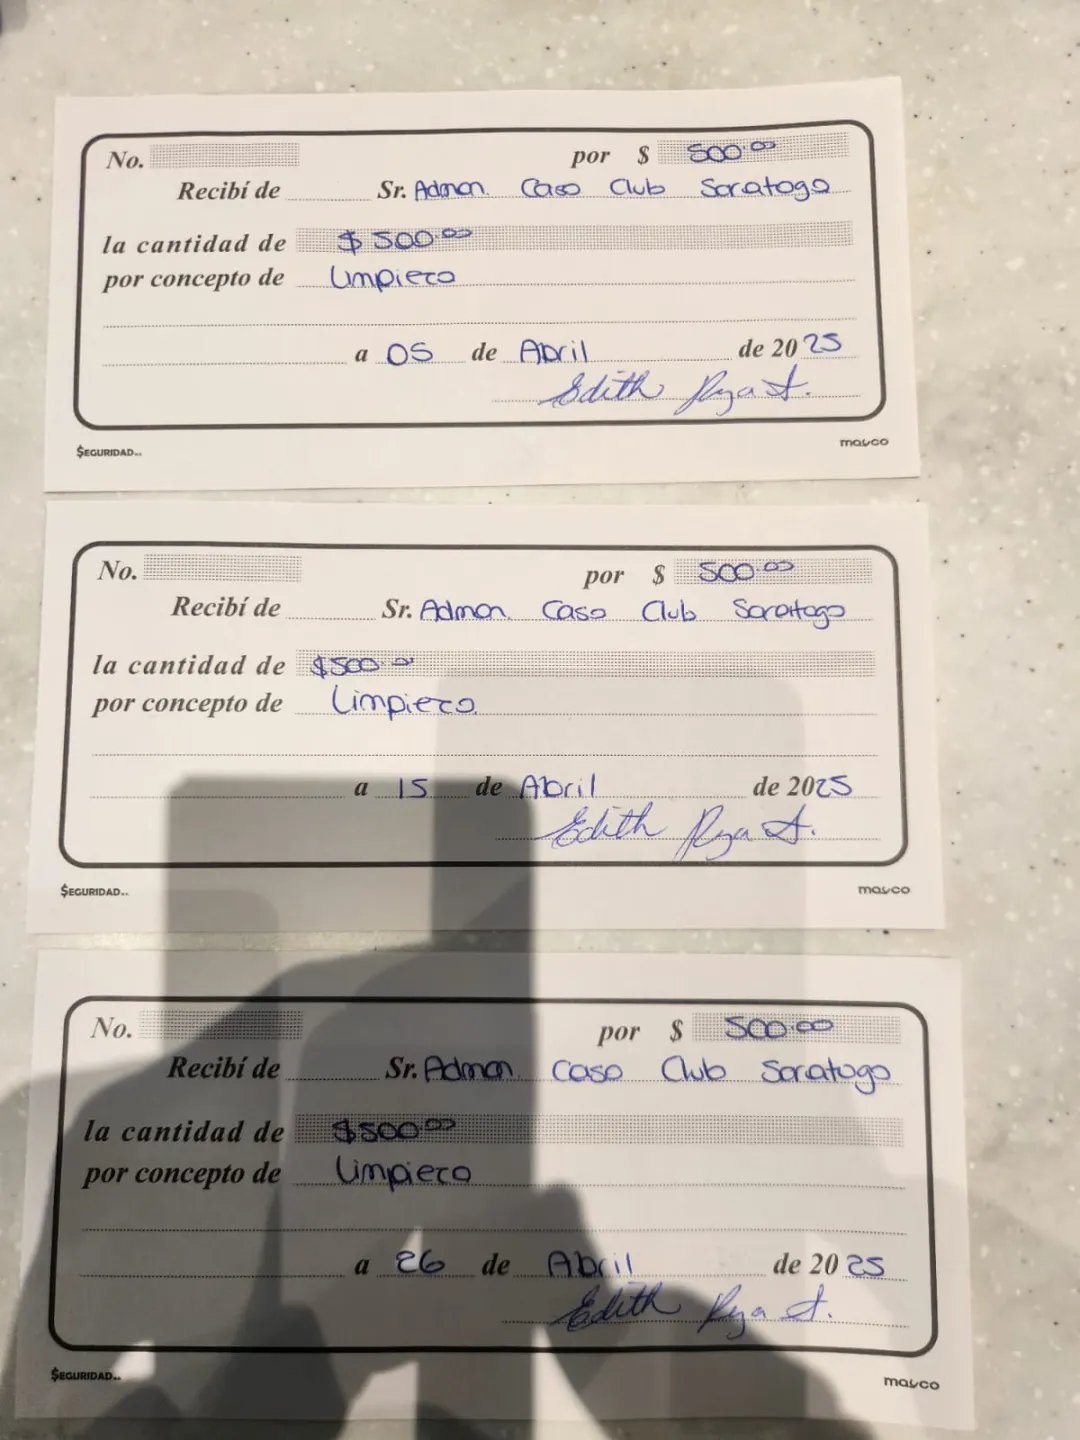 No. por $ 500.00
Recibí de Sr. Admon. Casa Club Saratoga
la cantidad de $ 500.00
por concepto de Limpieza
a 05 de Abril de 2025
Edith
$EGURIDAD..
mayco
No. por $ 500.00
Recibí de Sr. Admon. Casa Club Saratoga
la cantidad de $500.00
por concepto de Limpieza
a 15 de Abril de 2025
Edith
$EGURIDAD..
mayco
No. por $ 500.00
Recibí de Sr. Admon. Casa Club Saratoga
la cantidad de $500.00
por concepto de Limpieza
a 26 de Abril de 2025
Edith
$EGURIDAD..
mayco